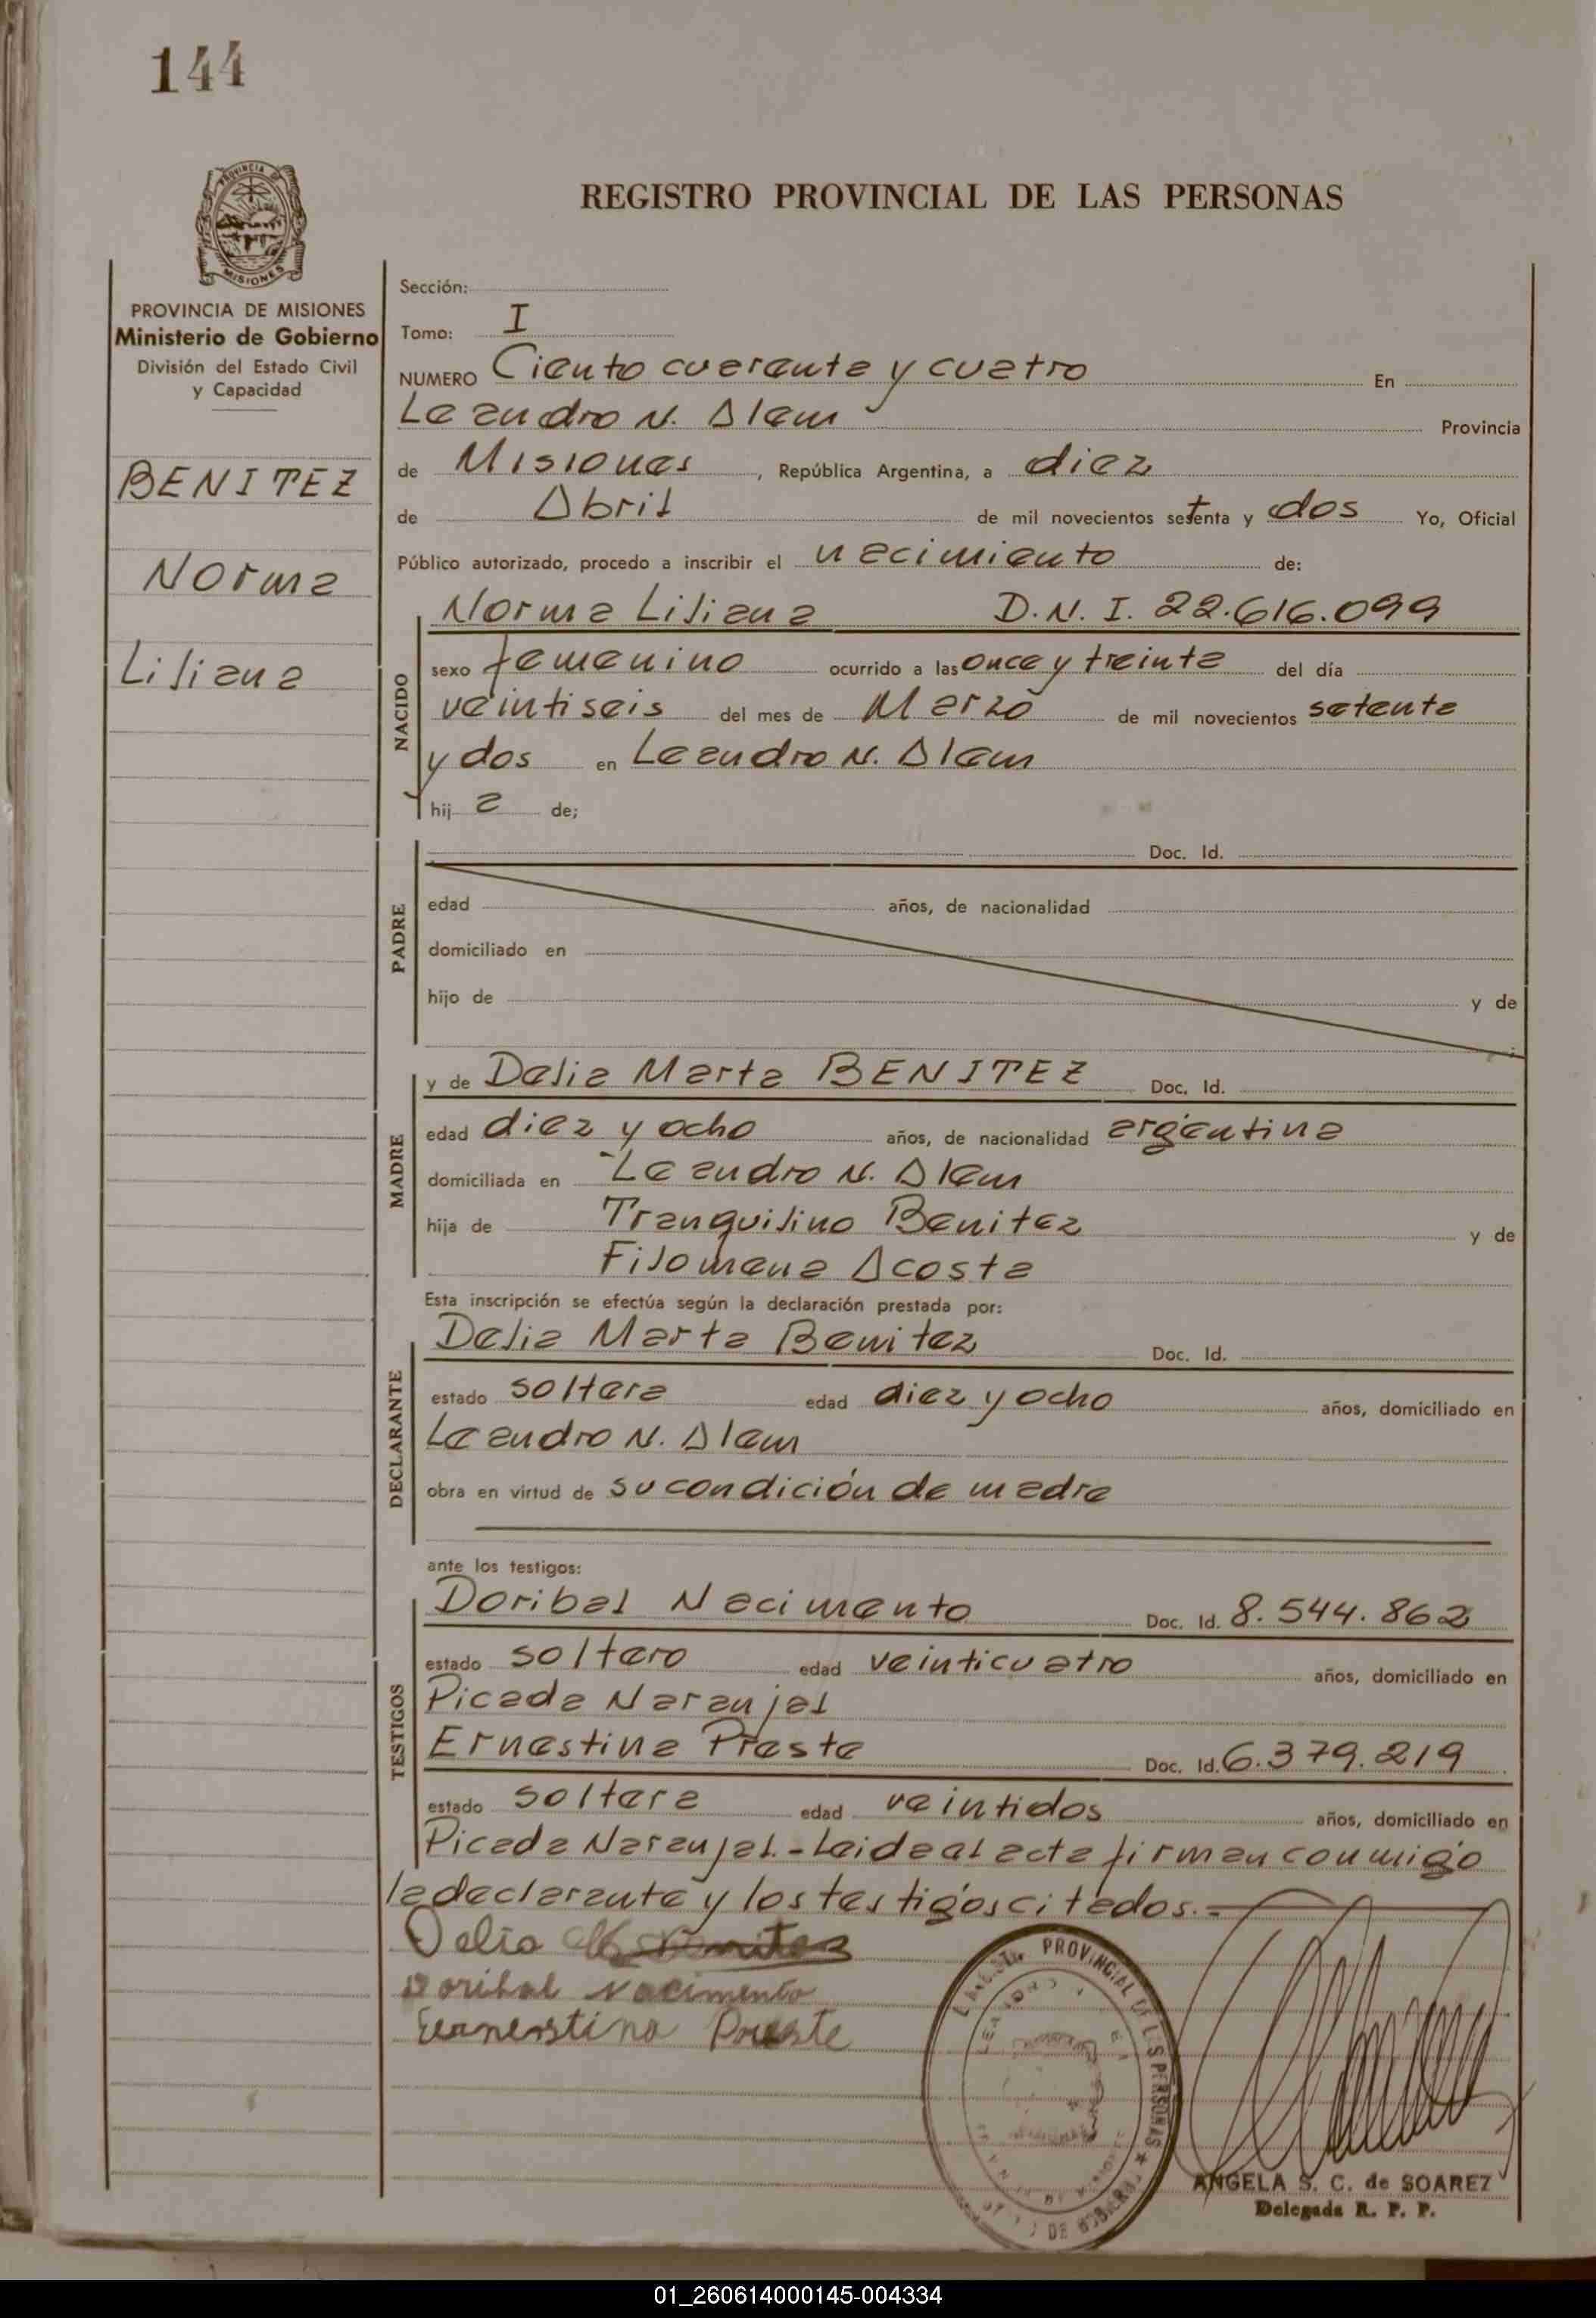 144
PROVINCIA DE
MISIONES
REGISTRO PROVINCIAL DE LAS PERSONAS
PROVINCIA DE MISIONES
Ministerio de Gobierno
División del Estado Civil
y Capacidad
BENITEZ
Norma
Liliana
Sección:
Tomo: I
NUMERO Ciento cuarenta y cuatro En
Leandro N. Alem Provincia
de Misiones, República Argentina, a diez
de Abril de mil novecientos setenta y dos Yo, Oficial
Público autorizado, procedo a inscribir el nacimiento de:
NACIDO
Norma Liliana D.N.I. 22.616.099
sexo femenino ocurrido a las once y treinta del día
veintiseis del mes de Marzo de mil novecientos setenta
y dos en Leandro N. Alem
hij a de;
PADRE
Doc. Id.
edad años, de nacionalidad
domiciliado en
hijo de y de
MADRE
y de Delia Marta BENITEZ Doc. Id.
edad diez y ocho años, de nacionalidad argentina
domiciliada en Leandro N. Alem
hija de Tranquilino Benitez y de
Filomena Acosta
Esta inscripción se efectúa según la declaración prestada por:
DECLARANTE
Delia Marta Benitez Doc. Id.
estado soltera edad diez y ocho años, domiciliado en
Leandro N. Alem
obra en virtud de su condición de madre
ante los testigos:
TESTIGOS
Doribal Nacimento Doc. Id. 8.544.862
estado soltero edad veinticuatro años, domiciliado en
Picada Naranjal
Ernestina Preste Doc. Id. 6.379.219
estado soltera edad veintidos años, domiciliado en
Picada Naranjal.- Leida el acta firman conmigo
la declarante y los testigos citados.-
Delia M Benitez
Doribal Nacimento
Ernenstina Preste
PROVINCIAL DE LAS PERSONAS
ANGELA S. C. de SOAREZ
Delegada R. P. P.
01_260614000145-004334